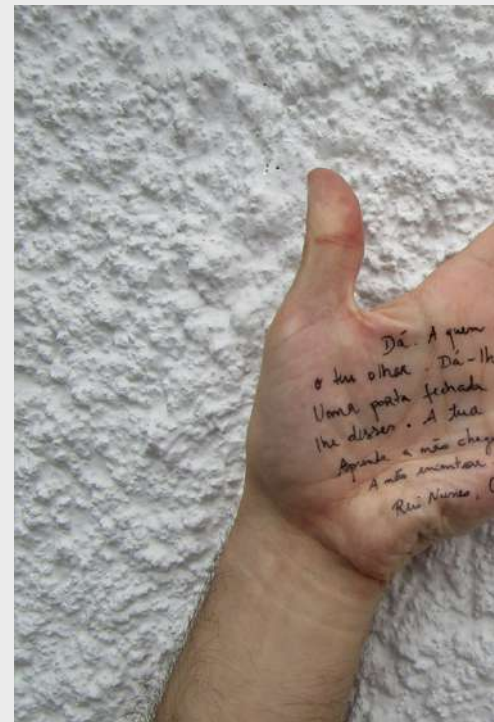 Dá. A quem
o teu olhar. Dá-lh
Uma porta fechada
lhe disses. A tua
Aprende a não cheg
A não encontrar
Rui Nunes,